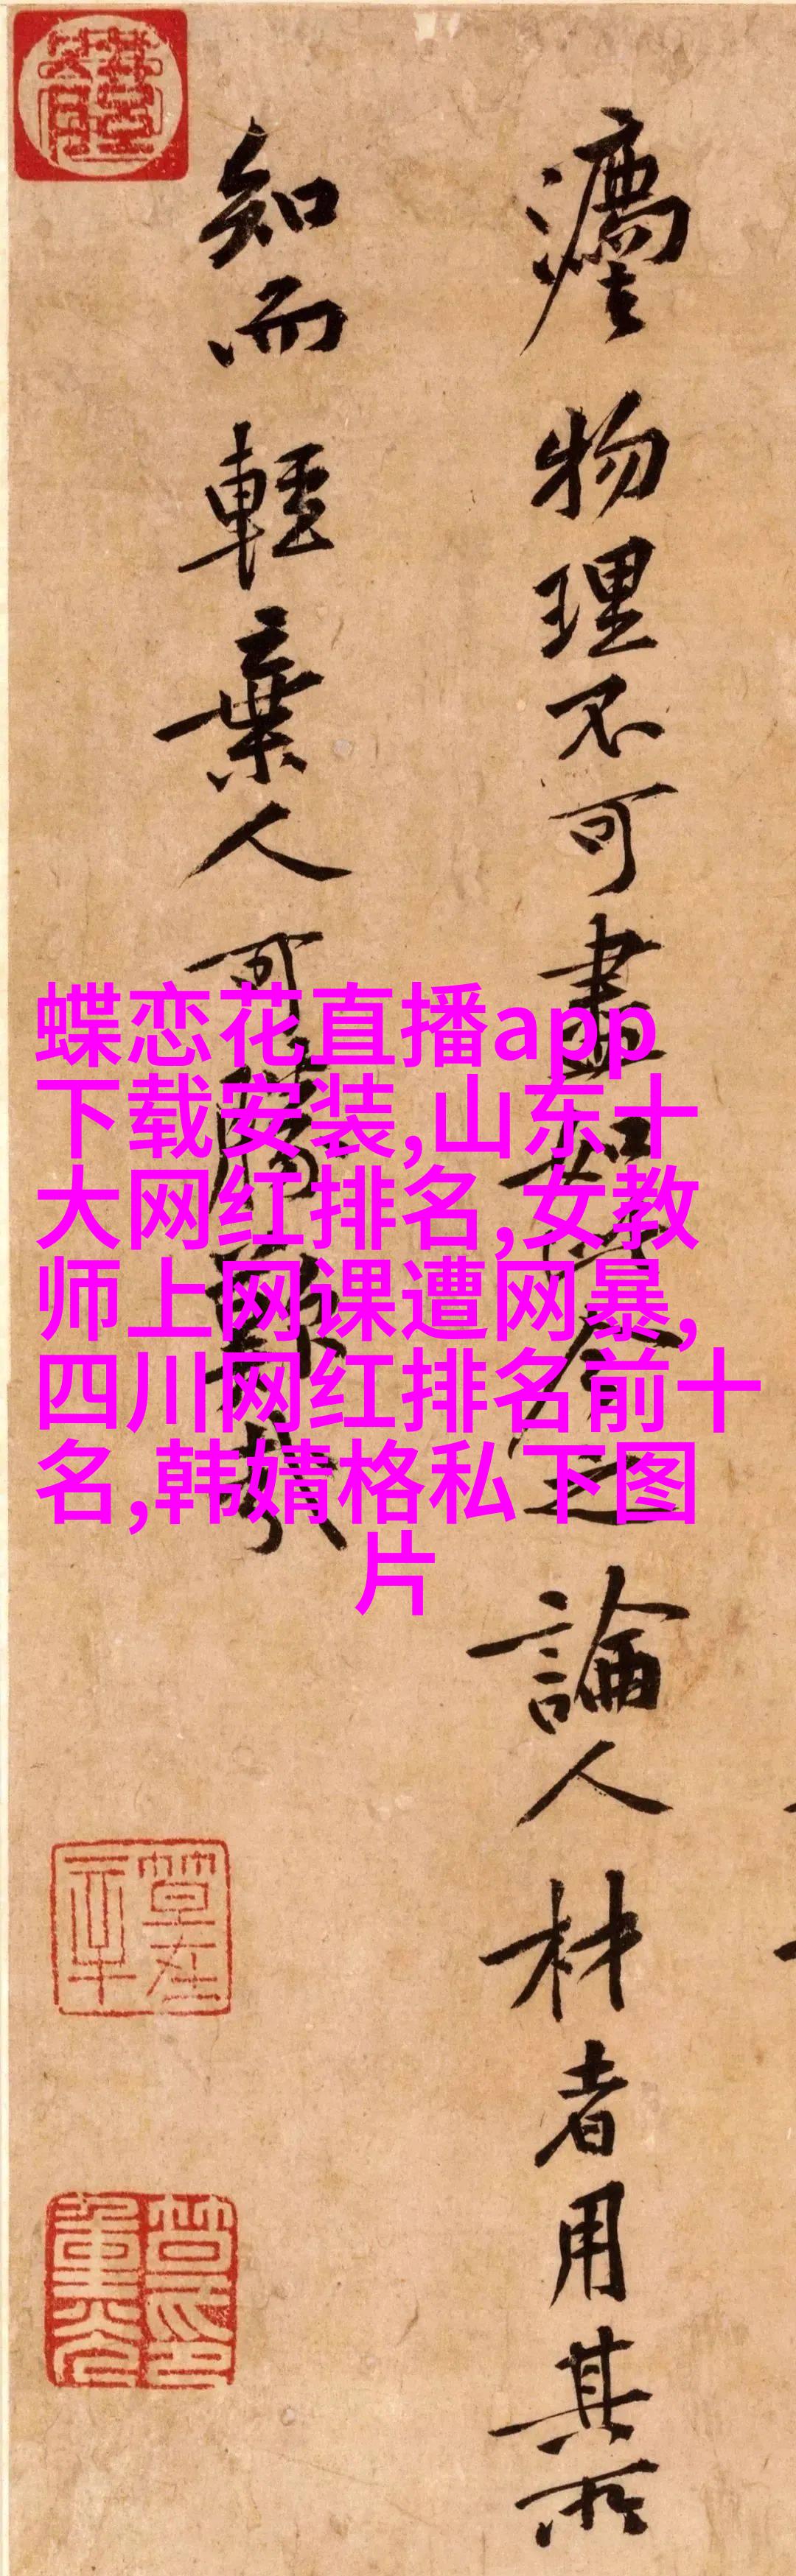 物理不可盡如此今之論人材者用其所
知而輕棄人可勝歎哉
蝶恋花直播app
下载安装,山东十
大网红排名,女教
师上网课遭网暴,
四川网红排名前十
名,韩婧格私下图
片